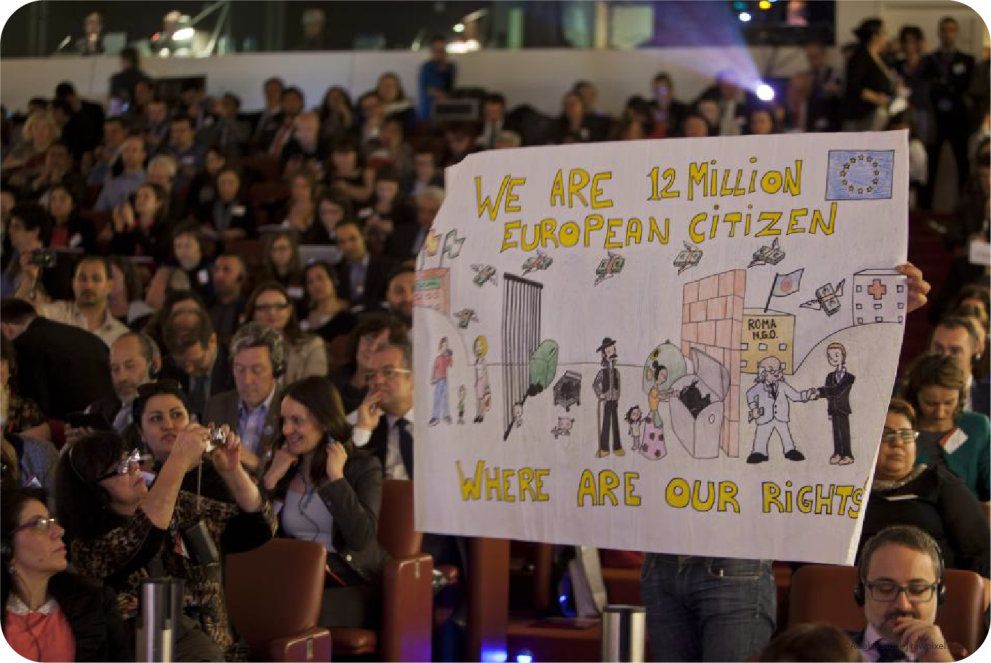 WE ARE 12 MiLLiON
EUROPEAN CiTiZEN
ROMA
N.G.O.
WHERE ARE OUR RiGHTS